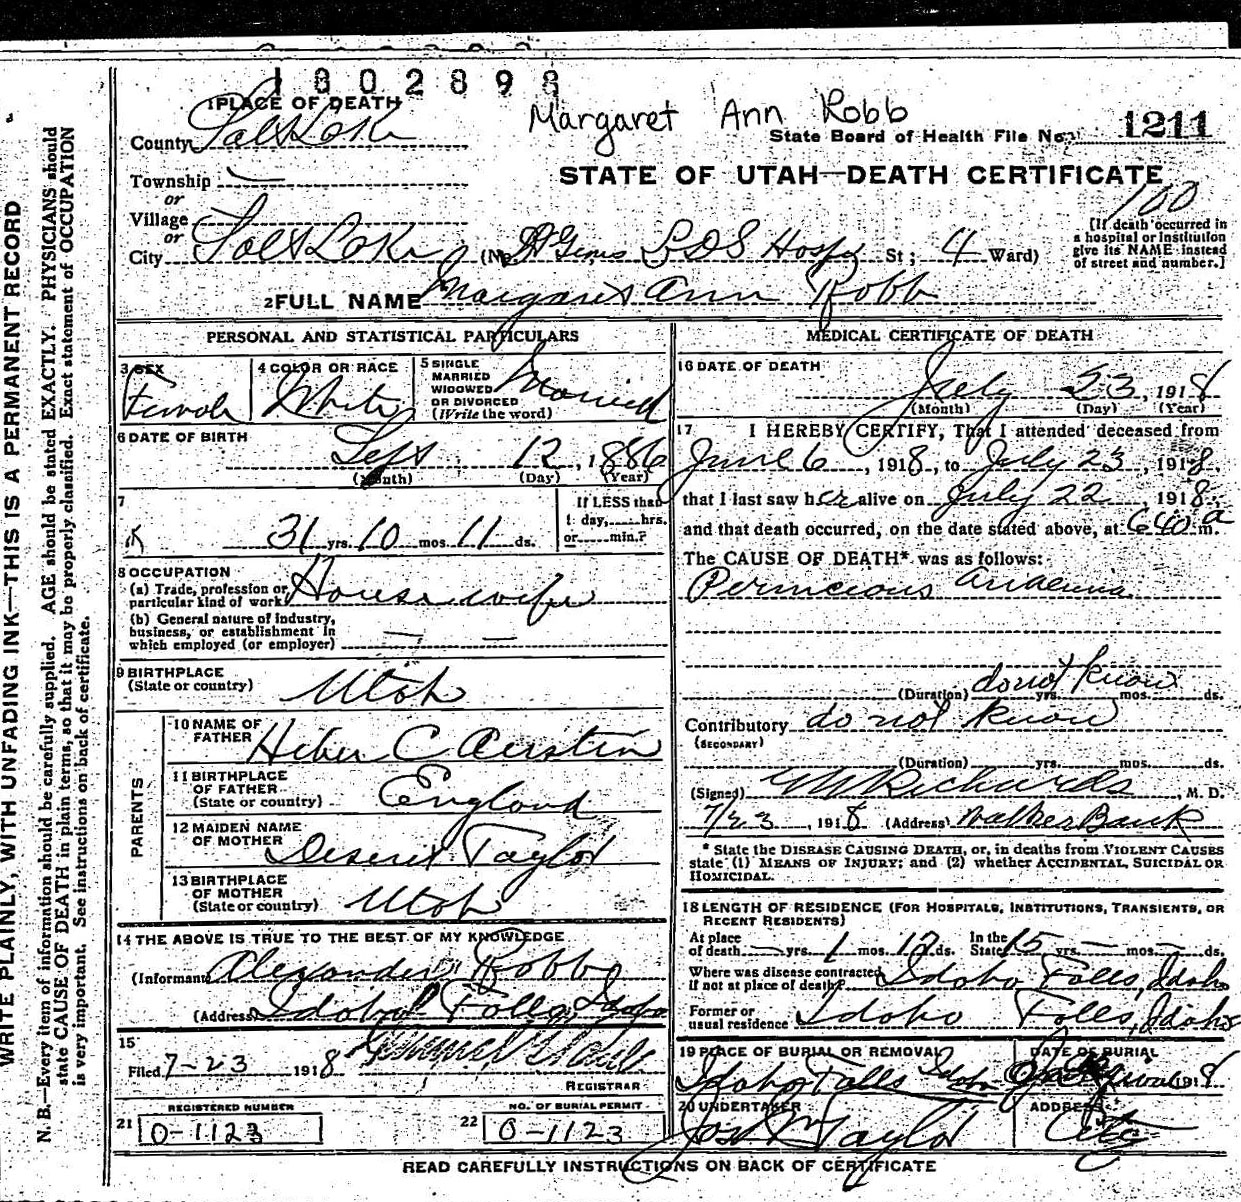 1802898
1 PLACE OF DEATH
Margaret Ann Robb
County Salt Lake
State Board of Health File No. 1211
Township
STATE OF UTAH—DEATH CERTIFICATE
or
Village
or
City Salt Lake (No. LDS Hosp St; 4 Ward)
100
[If death occurred in
a hospital or institution
give its NAME instead
of street and number.]
2 FULL NAME Margaret Ann Robb
PERSONAL AND STATISTICAL PARTICULARS
3 SEX
Female
4 COLOR OR RACE
White
5 SINGLE
MARRIED
WIDOWED
OR DIVORCED
(Write the word)
Married
6 DATE OF BIRTH
Sept 12, 1886
(Month) (Day) (Year)
7
31 yrs. 10 mos. 11 ds.
If LESS than
1 day, hrs.
or min.?
8 OCCUPATION
(a) Trade, profession or
particular kind of work
House wife
(b) General nature of industry,
business, or establishment in
which employed (or employer)
9 BIRTHPLACE
(State or country)
Utah
PARENTS
10 NAME OF
FATHER
Heber C
11 BIRTHPLACE
OF FATHER
(State or country)
England
12 MAIDEN NAME
OF MOTHER
Deseret Taylor
13 BIRTHPLACE
OF MOTHER
(State or country)
Utah
14 THE ABOVE IS TRUE TO THE BEST OF MY KNOWLEDGE
(Informant) Alexander Robb
(Address) Idaho Falls, Idaho
15
Filed 7-23 1918
REGISTRAR
REGISTERED NUMBER
21 0-1123
NO. OF BURIAL PERMIT
22 0-1123
MEDICAL CERTIFICATE OF DEATH
16 DATE OF DEATH
July 23, 1918
(Month) (Day) (Year)
17 I HEREBY CERTIFY, That I attended deceased from
June 6, 1918, to July 23, 1918,
that I last saw her alive on July 22, 1918,
and that death occurred, on the date stated above, at 640 a m.
The CAUSE OF DEATH* was as follows:
Pernicious anaemia
(Duration) do not know yrs. mos. ds.
Contributory do not know
(SECONDARY)
(Duration) yrs. mos. ds.
(Signed) Richards, M. D.
7/23, 1918 (Address) Walker Bank
* State the DISEASE CAUSING DEATH, or, in deaths from VIOLENT CAUSES
state (1) MEANS OF INJURY; and (2) whether ACCIDENTAL, SUICIDAL OR
HOMICIDAL.
18 LENGTH OF RESIDENCE (FOR HOSPITALS, INSTITUTIONS, TRANSIENTS, OR
RECENT RESIDENTS)
At place
of death — yrs. 1 mos. 17 ds. In the
State 15 yrs. — mos. — ds.
Where was disease contracted
if not at place of death? Idaho Falls, Idaho
Former or
usual residence Idaho Falls, Idaho
19 PLACE OF BURIAL OR REMOVAL
Idaho Falls Idaho
DATE OF BURIAL
1918
20 UNDERTAKER
Jos Wm Taylor
ADDRESS
City
READ CAREFULLY INSTRUCTIONS ON BACK OF CERTIFICATE
WRITE PLAINLY, WITH UNFADING INK—THIS IS A PERMANENT RECORD
N. B.—Every item of information should be carefully supplied. AGE should be stated EXACTLY. PHYSICIANS should
state CAUSE OF DEATH in plain terms, so that it may be properly classified. Exact statement of OCCUPATION
is very important. See instructions on back of certificate.